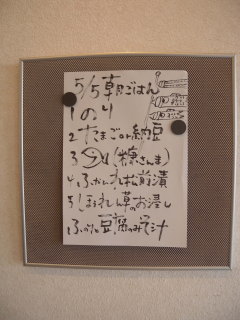 5/5 朝ごはん
1 のり
2 たまごor納豆
3 (糠さんま)
4 ふかひれ松前漬
5 ほうれん草のお浸し
ふのり豆腐のみそ汁